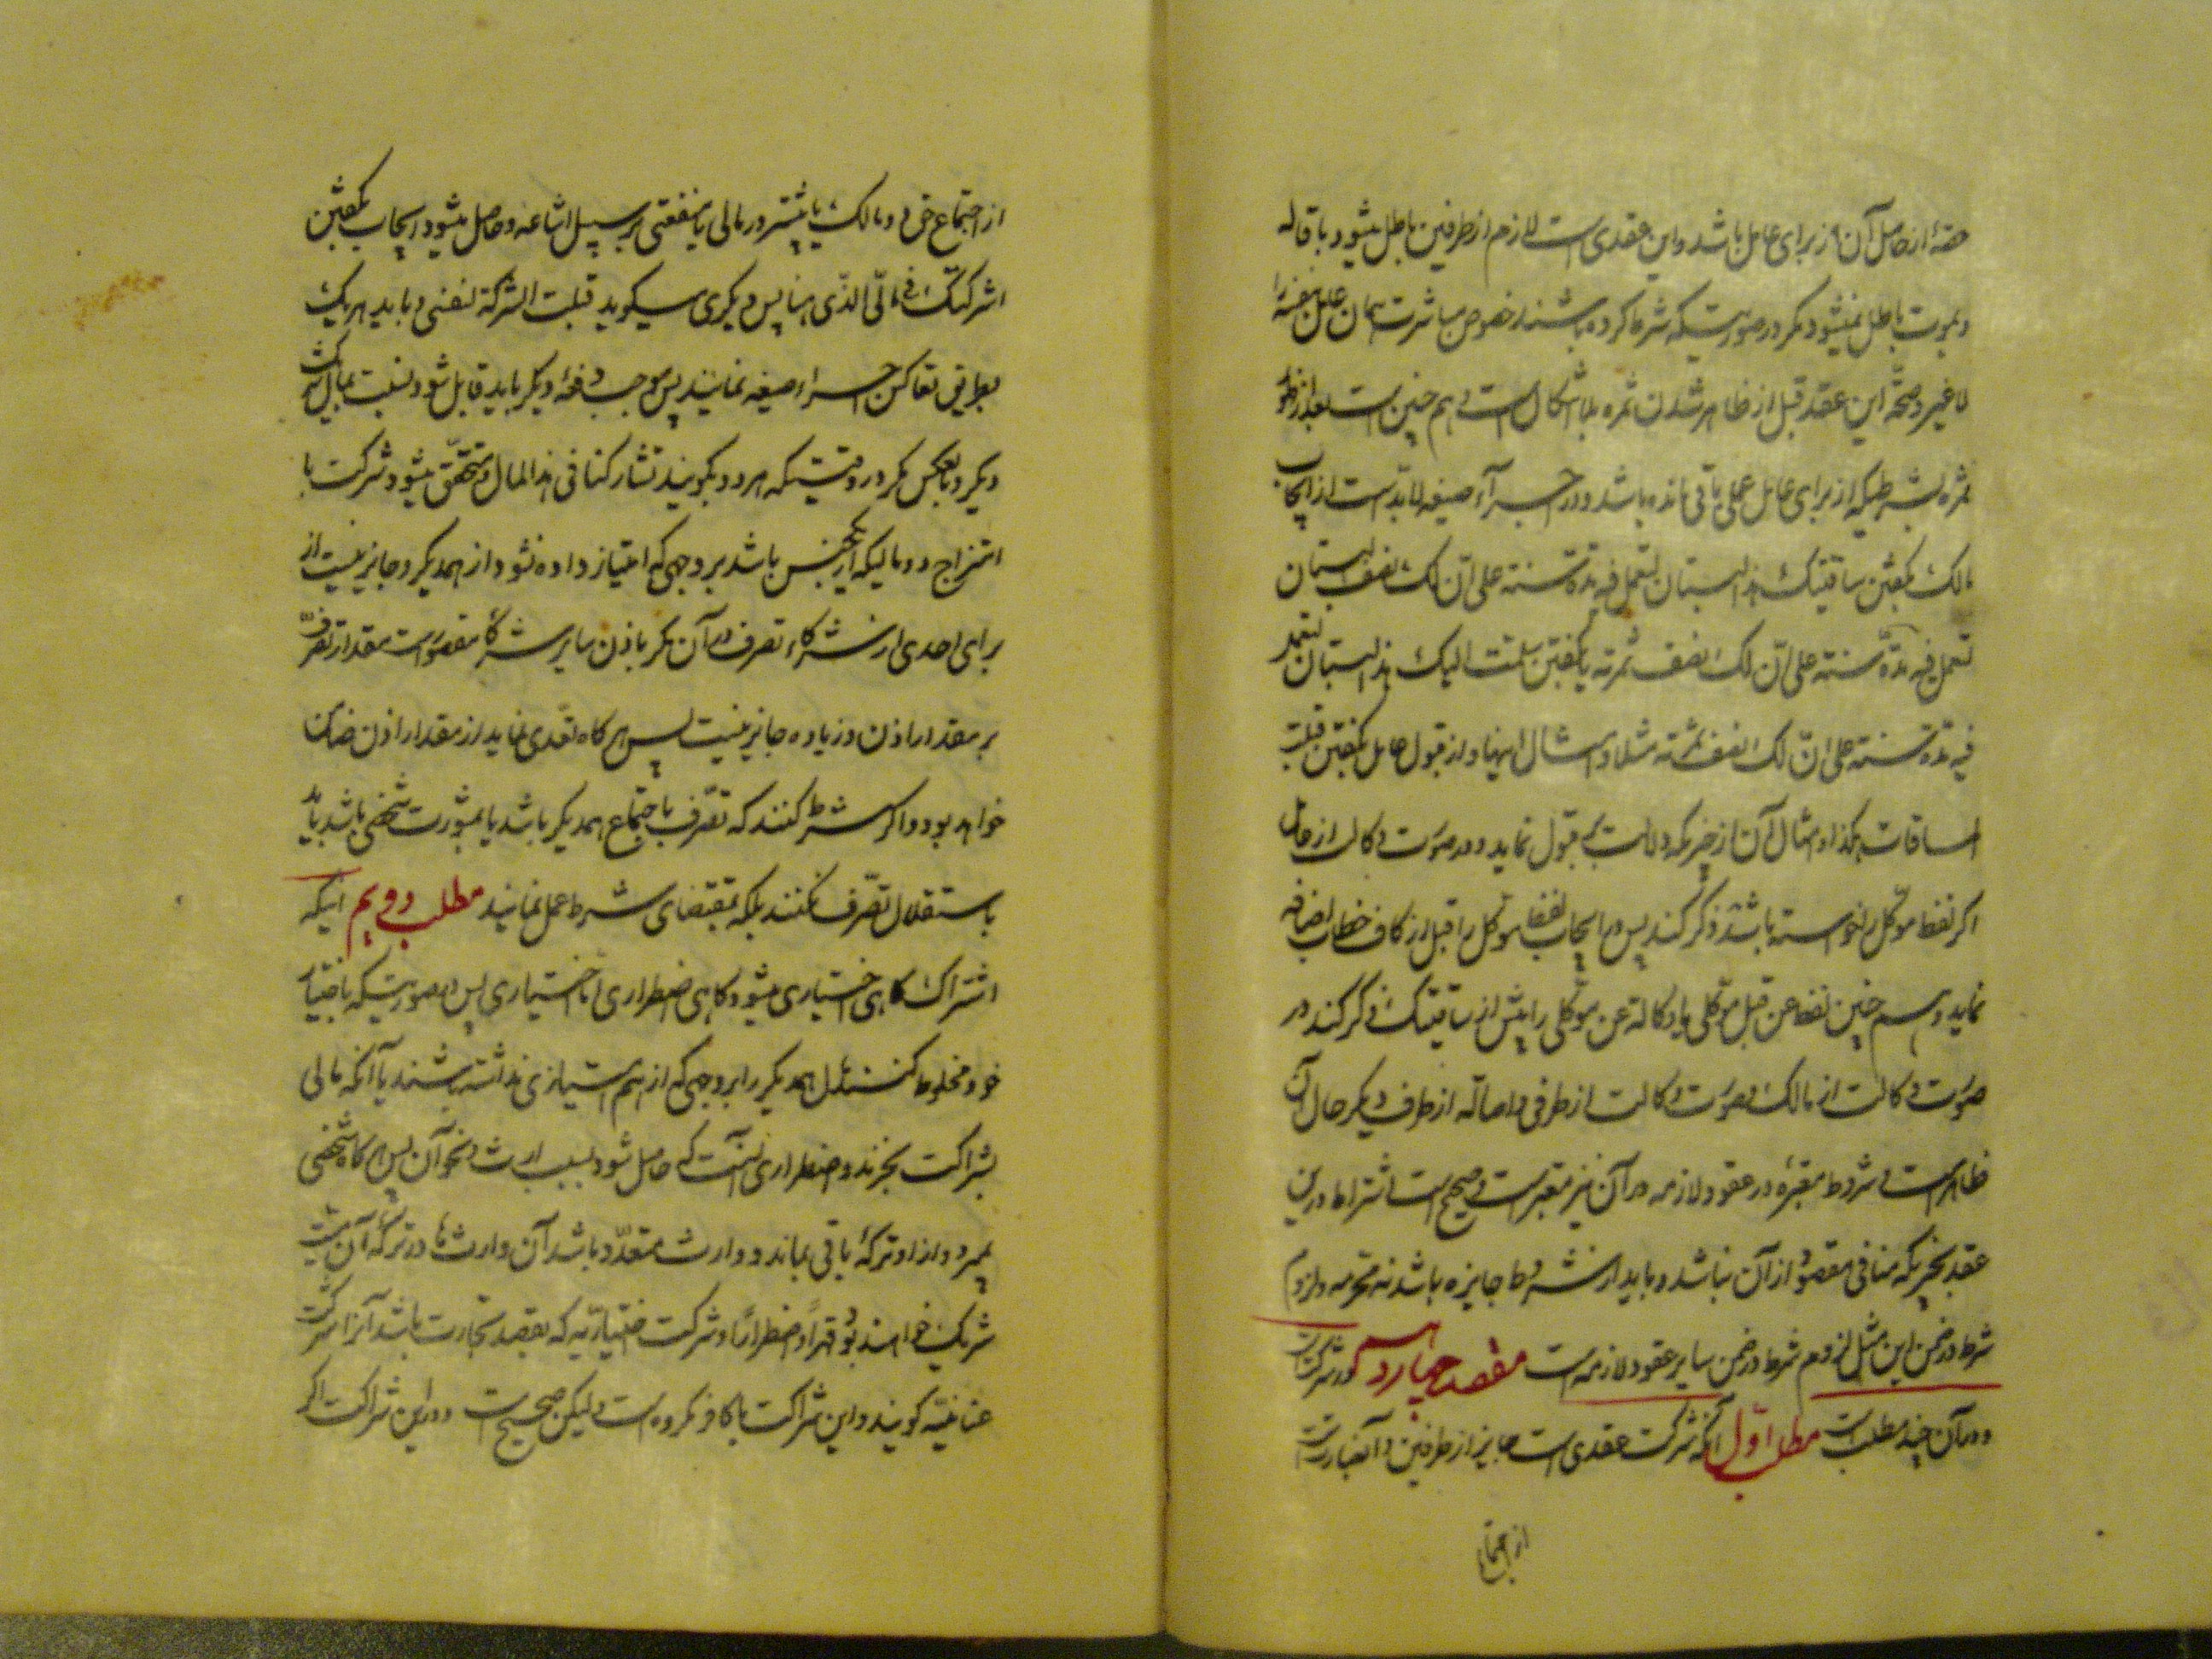 حصهٔ از حاصل آن از برای عامل باشد و این عقدی است لازم از طرفین باطل میشود باقاله
و بموت باطل نمیشود مگر در صورتیکه شرط کرده باشند خصوص مباشرت همان عامل بنفسه را
لا غیر و صحة این عقد قبل از ظاهر شدن ثمره بلا اشکال است و هم چنین است بعد از ظهور
ثمره بشرطیکه از برای عامل عملی باقی مانده باشد و در اجراء صیغه لابد است از ایجاب
مالک بگفتن ساقیتک هذا البستان لتعمل فیه مدة سنته علی ان لک نصف البستان
تعمل فیه مدة سنته علی ان لک نصف ثمرته یا بگفتن سلمت الیک هذا البستان لتعمل
فیه مدة سنته علی ان لک نصف ثمرته مثلا و امثال اینها و از قبول عامل بگفتن قبلت
المساقات هکذا و امثال آن از چیزیکه دلالت بر قبول نماید و در صورت وکالت از عامل
اگر لفظ موکل را خواسته باشد ذکر کند پس در ایجاب لفظ موکل را قبل از کاف خطاب اضافه
نماید و هم چنین لفظ عن قبل موکلی یا وکالة عن موکلی را پیش از ساقیتک ذکر کند در
صورت وکالت از مالک و صورت وکالت از طرفی و اصالة از طرف دیگر حال آن
ظاهر است و شروط معتبره در عقود لازمه در آن نیز معتبر است و صحیح است اشتراط در این
عقد بچیزیکه منافی مقصود از آن نباشد و باید از شروط جایزه باشد نه محرمه و لزوم
شرط در ضمن این مثل لزوم شرط در ضمن سایر عقود لازمه است مقصد چهارم در شرکت است
و در آن چند مطلب است مطلب اول آنکه شرکت عقدی است جایز از طرفین و آن عبارت است
از اجتماع
از اجتماع حق دو مالک یا بیشتر در مالی یا منفعتی بر سبیل اشاعه و حاصل میشود ایجاب بگفتن
اشرکتک فی مالی الذی هنا پس دیگری میگوید قبلت الشرکة لنفسی و باید هر یک
بطریق تعاکس اجراء صیغه نمایند پس موجب دفعهٔ دیگر باید قابل شود نسبت بمال شریک
دیگر و بالعکس مگر در وقتیکه هر دو بگویند تشارکنا فی هذا المال و متحقق میشود شرکت با
امتزاج دو مالیکه از یکجنس باشد بر وجهی که امتیاز داده نشود از همدیگر و جایز نیست از
برای احدی از شرکاء تصرف در آن مگر باذن سایر شرکا و مقصور است مقدار تصرف
بر مقدار اذن و زیاده جایز نیست پس هر گاه تعدی نماید از مقدار اذن ضامن
خواهد بود و اگر شرط کنند که تصرف با اجتماع همدیگر باشد یا بمشورت شخصی باشد باید
باستقلال تصرف نکنند بلکه بمقتضای شرط عمل نمایند مطلب دویم اینکه
اشتراک گاهی اختیاری میشود گاهی اضطراری اما اختیاری پس در صورتیکه باختیار
خود مخلوط کنند مال همدیگر را بر وجهی که از هم امتیازی نداشته باشند یا آنکه مالی
بشراکت بخرند و اضطراری آنست که حاصل شود بسبب ارث و نحو آن پس هر گاه شخصی
بمیرد و از او ترکهٔ باقی بماند و وارث متعدد باشد آن وارث ها در ترکهٔ آن میت
شریک خواهند بود قهراً و اضطراراً و شرکت اختیاریه که بقصد تجارت باشد آنرا شرکت
عنانیه گویند و این شراکت با کافر مکروه است و لیکن صحیح است و در این شراکت اگر